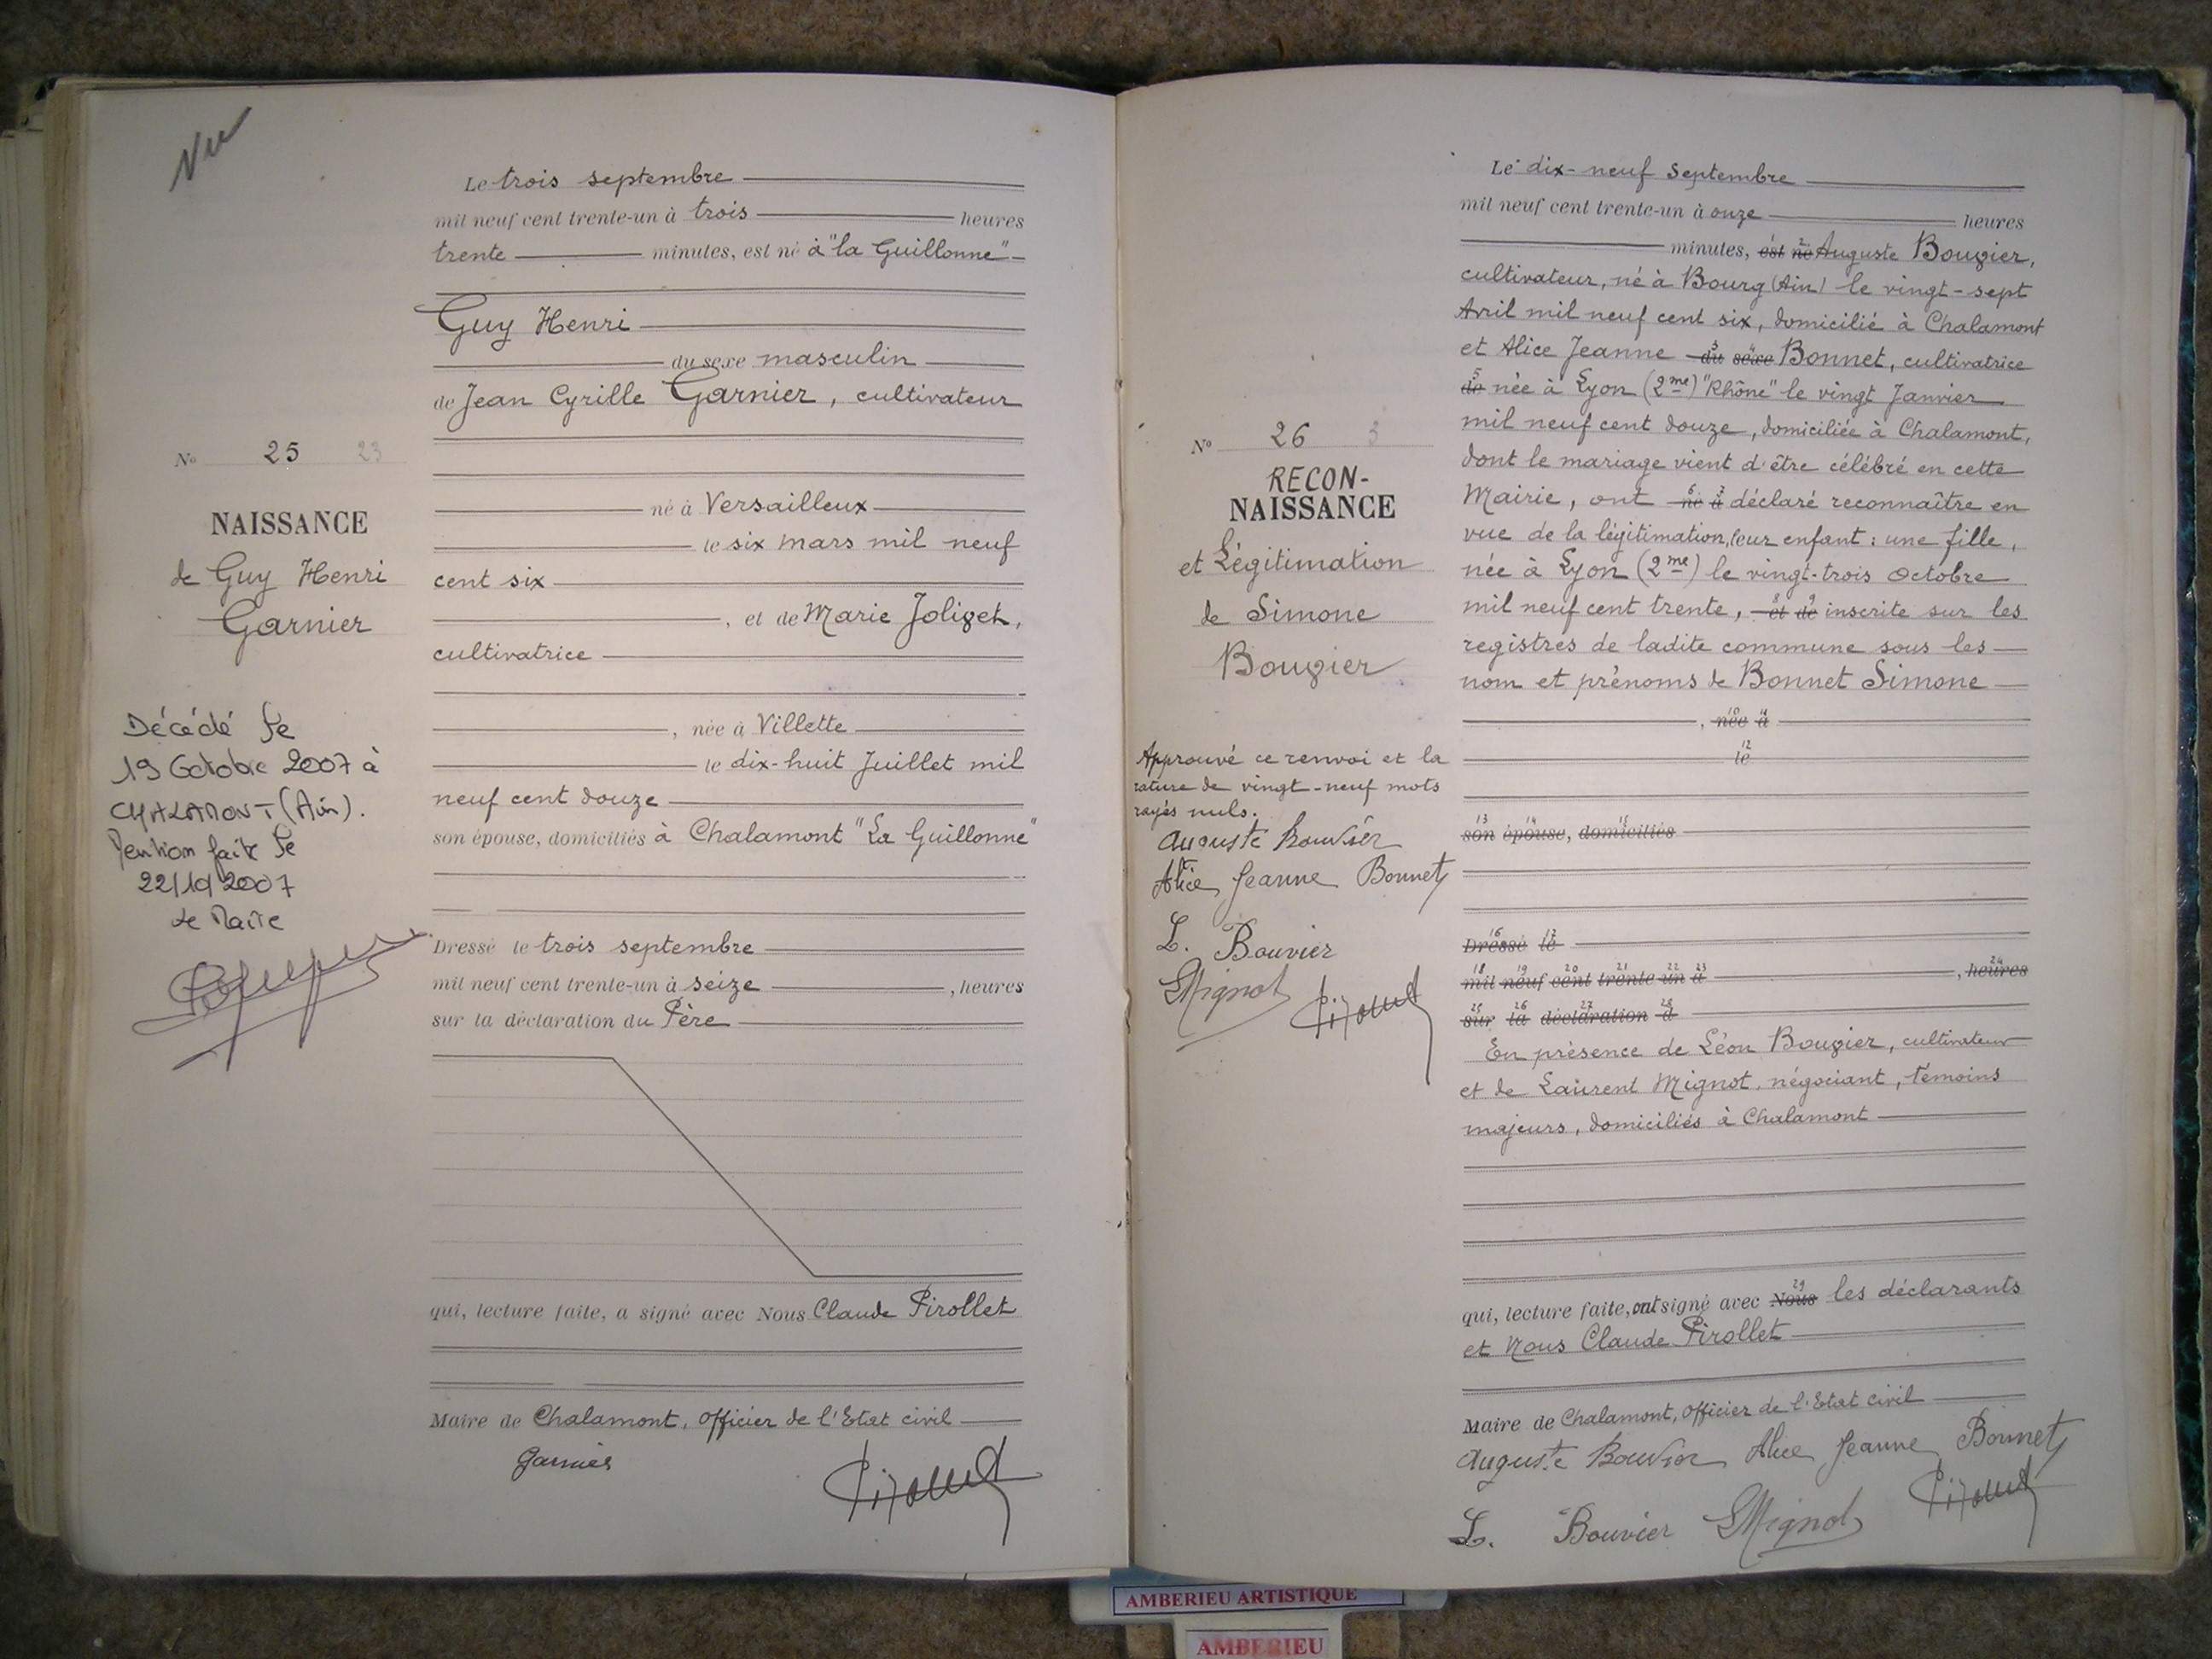 Vu
Le trois septembre
mil neuf cent trente-un à trois heures
trente minutes, est né à "la Guillonne"
Guy Henri
du sexe masculin
de Jean Cyrille Garnier, cultivateur
né à Versailleux
le six mars mil neuf
cent six
, et de Marie Joliget,
cultivatrice
, née à Villette
le dix-huit Juillet mil
neuf cent douze
son épouse, domiciliés à Chalamont "La Guillonne"
Dressé le trois septembre
mil neuf cent trente-un à seize , heures
sur la déclaration du Père
qui, lecture faite, a signé avec Nous Claude Pirollet
Maire de Chalamont, Officier de l'Etat civil
Garnier
No 25 23
NAISSANCE
de Guy Henri
Garnier
Décédé le
19 Octobre 2007 à
CHALAMONT (Ain).
Mention faite le
22/10/2007
Le Maire
Le dix-neuf Septembre
mil neuf cent trente-un à onze heures
minutes, est né Auguste Bouvier,
cultivateur, né à Bourg (Ain) le vingt-sept
Avril mil neuf cent six, domicilié à Chalamont
et Alice Jeanne du sexe Bonnet, cultivatrice
de née à Lyon (2me) "Rhône" le vingt Janvier
mil neuf cent douze, domiciliée à Chalamont,
dont le mariage vient d'être célébré en cette
Mairie, ont né à déclaré reconnaître en
vue de la légitimation, leur enfant : une fille,
née à Lyon (2me) le vingt-trois Octobre
mil neuf cent trente, et de inscrite sur les
registres de ladite commune sous les
nom et prénoms de Bonnet Simone
, née à
le
son épouse, domiciliés
Dressé le
mil neuf cent trente-un à , heures
sur la déclaration d
En présence de Léon Bouvier, cultivateur
et de Laurent Mignot, négociant, témoins
majeurs, domiciliés à Chalamont
qui, lecture faite, ont signé avec Nous les déclarants
et Nous Claude Pirollet
Maire de Chalamont, Officier de l'Etat civil
Auguste Bouvier Alice Jeanne Bonnet
L. Bouvier LMignot Pirollet
No 26 3
RECON-
NAISSANCE
et Légitimation
de Simone
Bouvier
Approuvé ce renvoi et la
rature de vingt-neuf mots
rayés nuls.
Auguste Bouvier
Alice Jeanne Bonnet
L. Bouvier
LMignot Pirollet
AMBERIEU ARTISTIQUE
AMBERIEU